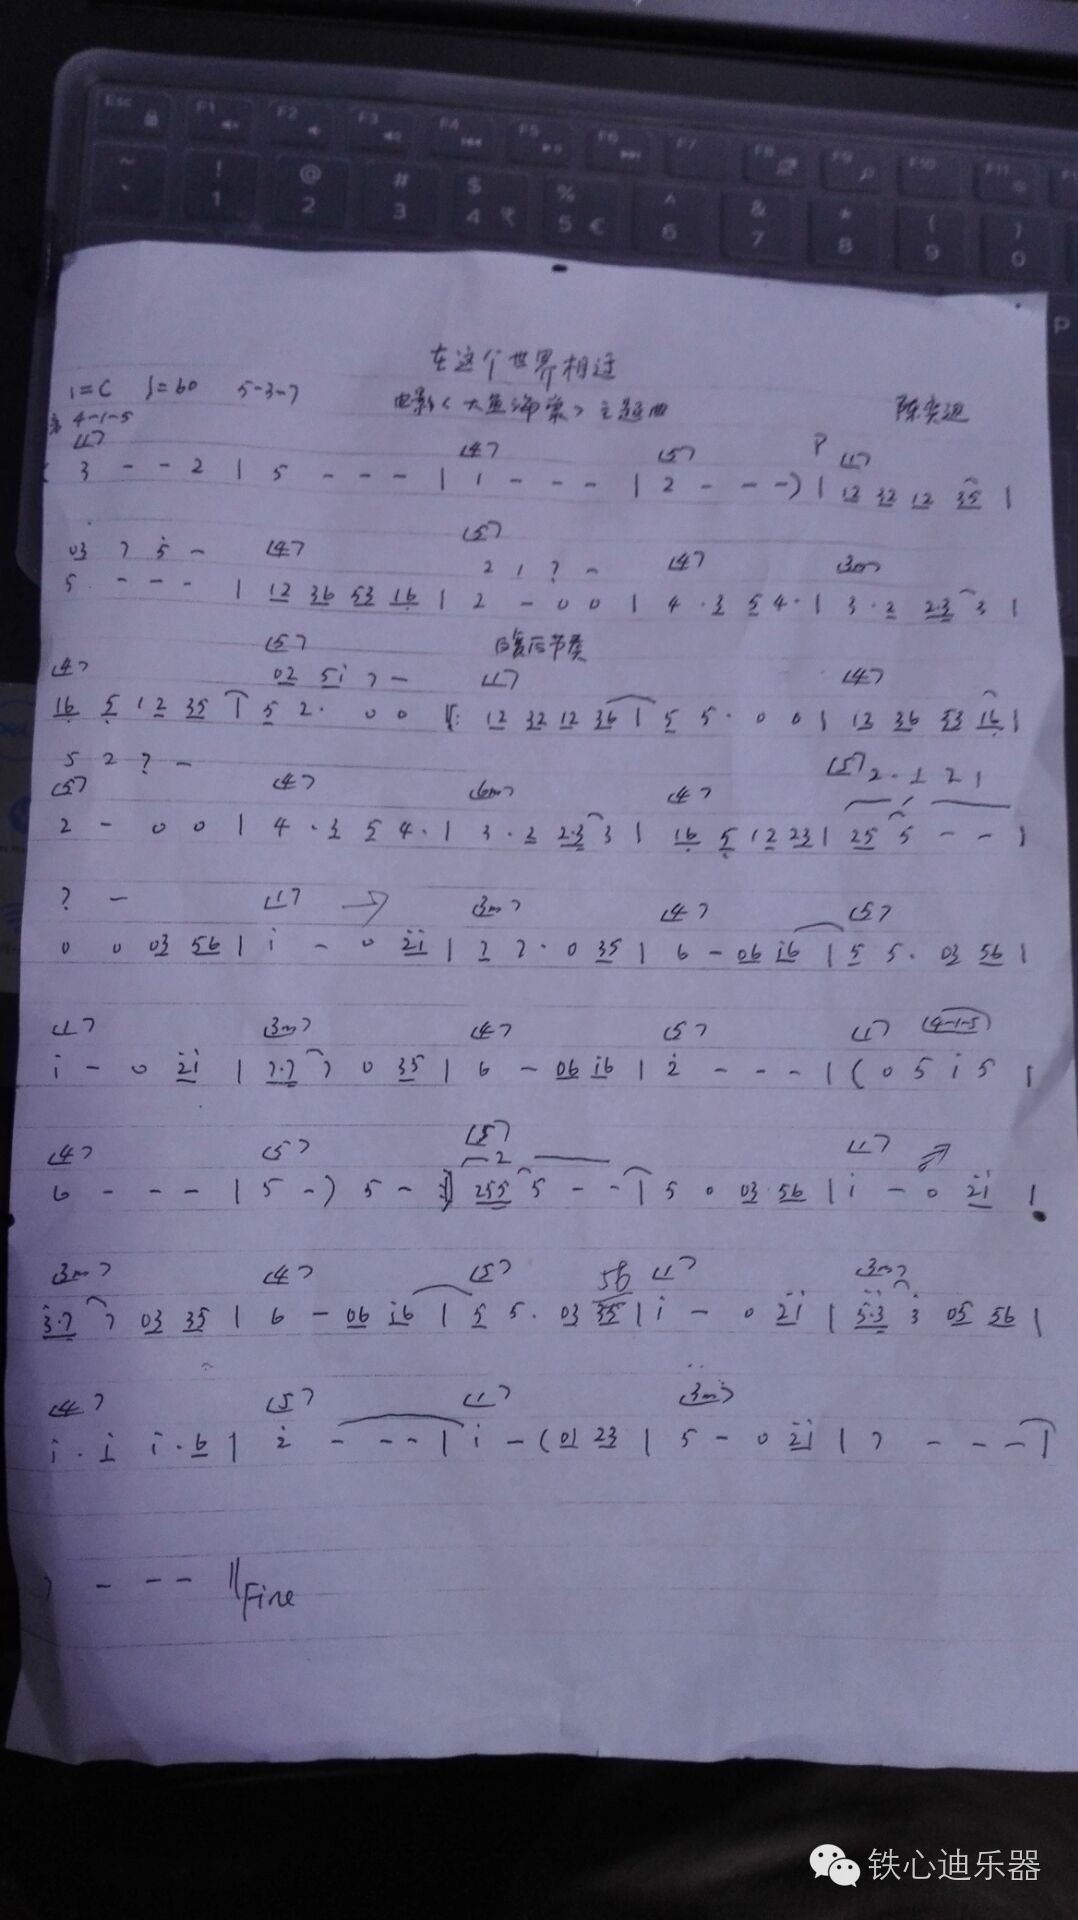 Esc F1 F2 F3 F4 F5 F6 F7 F8 F9 F10 F11
~ ` ! 1 @ 2 # 3 $ 4 ₹ % 5 € ^ 6 & 7 * 8 ( 9 ) 0
P
在这个世界相遇
1=C ♩=60 5-3-7 电影《大鱼海棠》主题曲 陈奕迅
4-1-5
<1> <4> <5> P <1>
3 - - 2 | 5 - - - | 1 - - - | 2 - - -) | 12 32 12 35 |
03 7 5 - <4> <5> 2 1 7 - <4> <3m>
5 - - - | 12 36 53 16 | 2 - 0 0 | 4 · 3 5 4 · | 3 · 2 2·3 3 |
<5> 反复后节奏
<4> 02 5i 7 - <1> <4>
16 5 12 35 | 5 2 · 0 0 ‖: 12 32 12 36 | 5 5 · 0 0 | 12 36 53 16 |
5 2 7 -
<5> <4> <6m> <4> <5> 2 · 1 2 1
2 - 0 0 | 4 · 3 5 4 · | 3 · 2 2·3 3 | 16 5 12 23 | 25 5 - - |
7 - <1> → <3m> <4> <5>
0 0 03 56 | i - 0 2i | 7 7 · 0 35 | 6 - 06 i6 | 5 5 · 03 56 |
<1> <3m> <4> <5> <1> <4-1-5>
i - 0 2i | 7·7 7 0 35 | 6 - 06 i6 | 2 - - - | (0 5 i 5 |
<4> <5> <5> 2 <1>
6 - - - | 5 -) 5 - :‖ 255 5 - - | 5 0 03 56 | i - 0 2i |
<3m> <4> <5> 56 <1> <3m>
3·7 7 03 35 | 6 - 06 i6 | 5 5 · 03 35 | i - 0 2i | 5·3 3 05 56 |
<4> <5> <1> <3m>
i · i i · 6 | 2 - - - | i - (01 23 | 5 - 0 2i | 7 - - - |
7 - - - ‖ Fine
铁心迪乐器